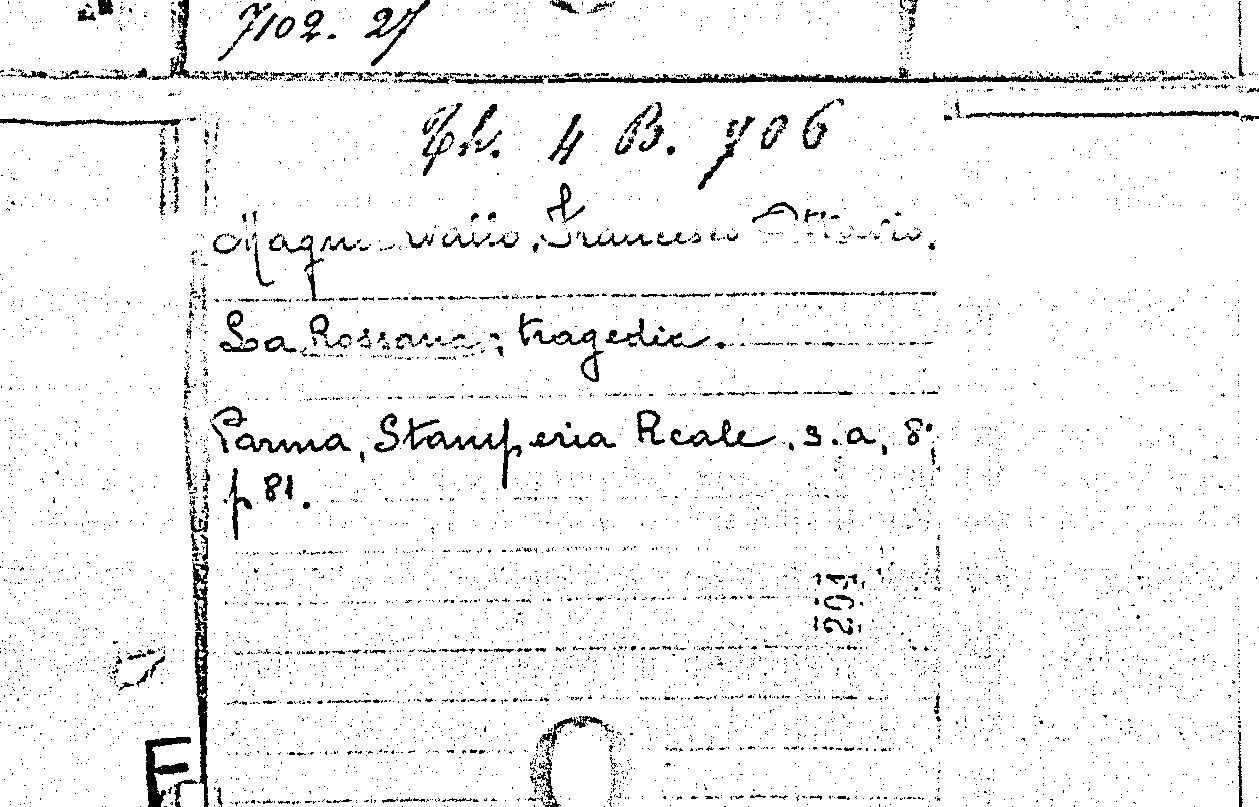 7102. 27
Th. 4 B. 706
Francesco Ottavio.
La Rossana; tragedia.
Parma, Stamperia Reale, s.a, 8°,
p 81.
201
E